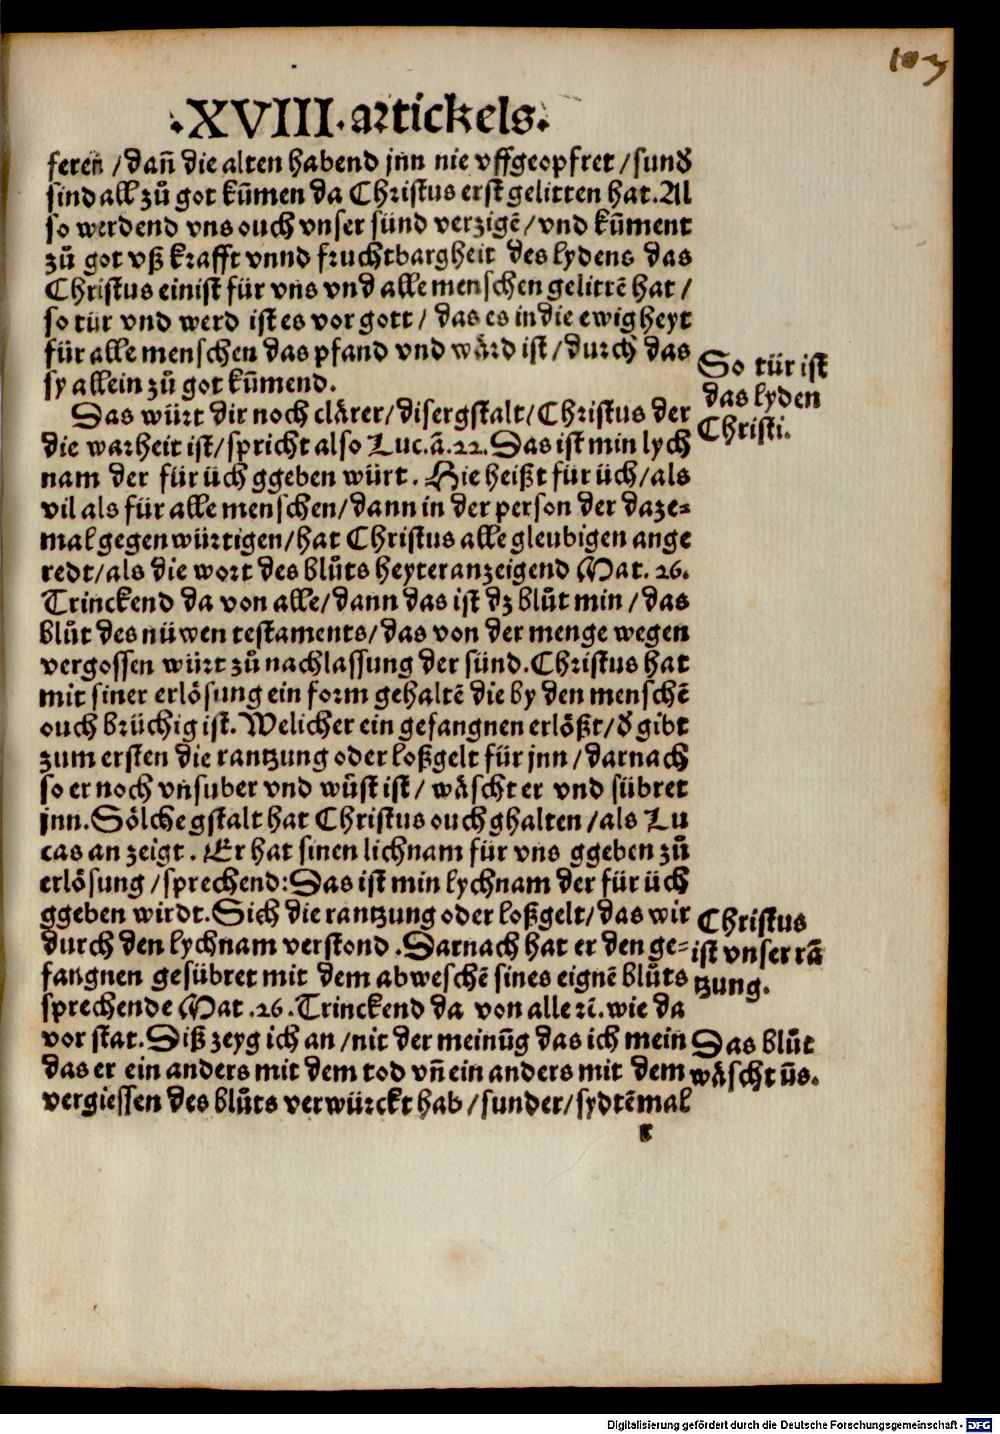 103
.XVIII. artickels.
feren / dañ die alten habend jnn nie vffgeopfret / sund
sind all zů got kūmen da Christus erst gelitten hat. Al
so werdend vns ouch vnser sünd verzigē / vnd kūment
zů got vß krafft vnnd fruchtbargheit des lydens das
Christus einist für vns vnd alle menschen gelittē hat /
so tür vnd werd ist es vor gott / das es in die ewigheyt
für alle menschen das pfand vnd wärd ist / durch das
sy allein zů got kūmend.
So tür ist
das lyden
Christi.
Das würt dir noch clärer / disergstalt / Christus der
die warheit ist / spricht also Luc. ā. 22. Das ist min lych
nam der für üch ggeben würt. Hie heißt für üch / als
vil als für alle menschen / dann in der person der daze=
mal gegenwürtigen / hat Christus alle gleubigen ange
redt / als die wort des blůts heyter anzeigend Mat. 26.
Trinckend da von alle / dann das ist dz blůt min / das
blůt des nüwen testaments / das von der menge wegen
vergossen würt zů nachlassung der sünd. Christus hat
mit siner erlösung ein form gehaltē die by den menschē
ouch brüchig ist. Welicher ein gefangnen erlößt / d gibt
zum ersten die rantzung oder loßgelt für jnn / darnach
so er noch vnsuber vnd wůst ist / wäscht er vnd sübret
jnn. Sölche gstalt hat Christus ouch ghalten / als Lu
cas anzeigt. Er hat sinen lichnam für vns ggeben zů
erlösung / sprechend: Das ist min lychnam der für üch
ggeben wirdt. Sich die rantzung oder loßgelt / das wir
durch den lychnam verstond. Darnach hat er den ge=
fangnen gesübret mit dem abweschē sines eignē blůts
sprechende Mat. 26. Trinckend da von alle ꝛc̄. wie da
vor stat. Diß zeyg ich an / nit der meinūg das ich mein
das er ein anders mit dem tod vñ ein anders mit dem
vergiessen des blůts verwürckt hab / sunder / sydtēmal
Christus
ist vnser rā
tzung.
Das blůt
wäscht ūs.
r
Digitalisierung gefördert durch die Deutsche Forschungsgemeinschaft - DFG